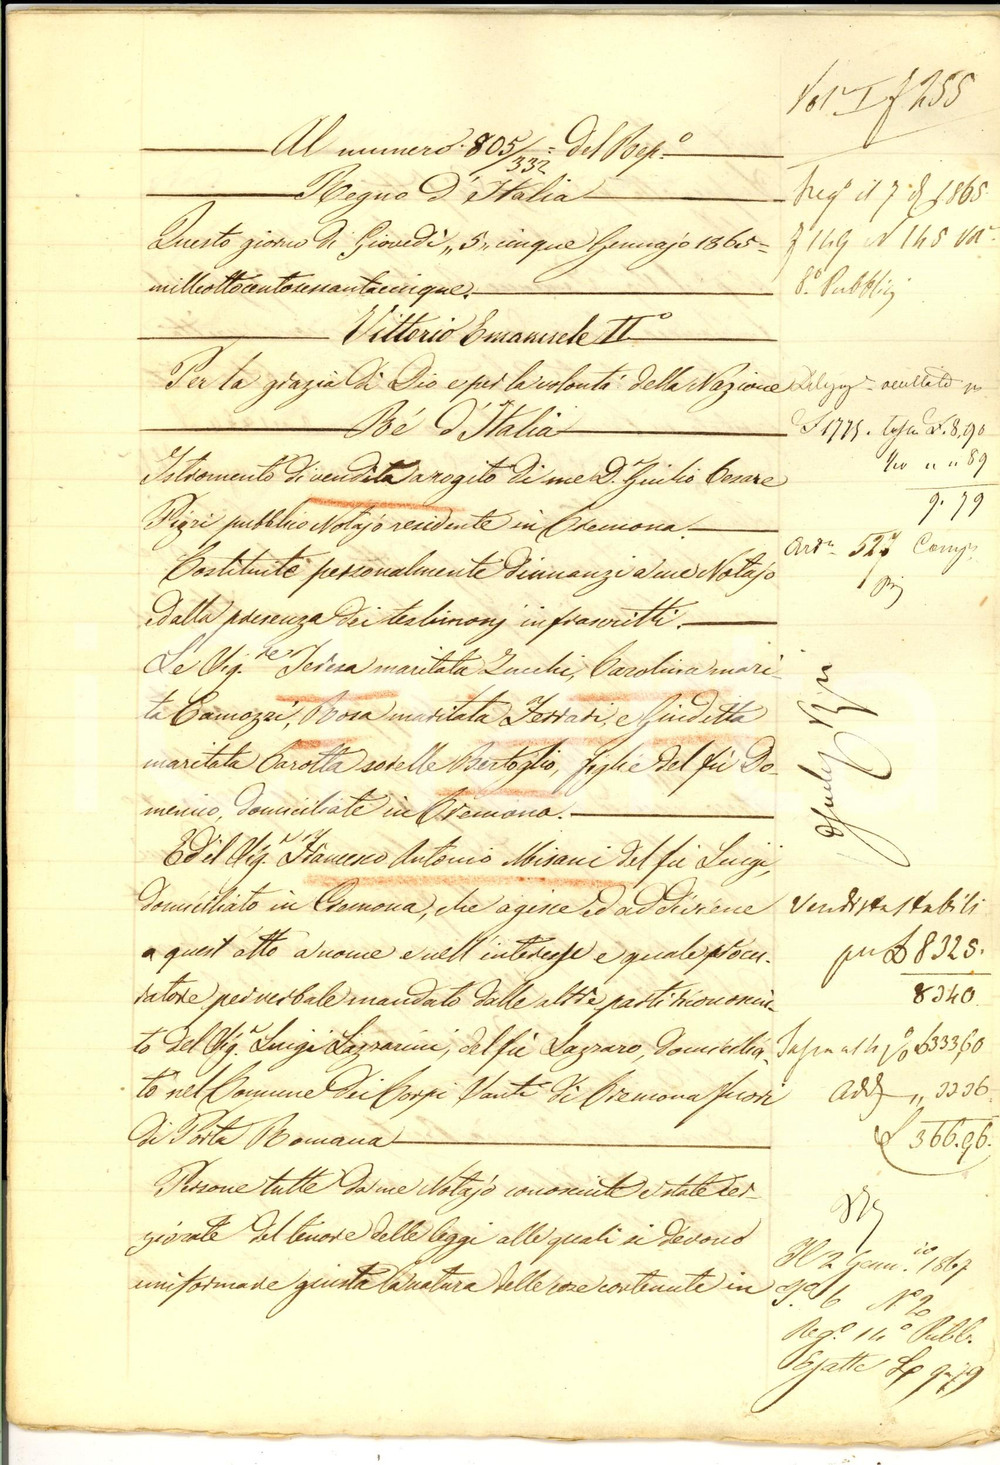 Vol. I f 255
Al numero 805/332 del Rep.o
Regno d'Italia
Questo giorno di Giovedì „5„ cinque Gennajo 1865=
milleottocentosessantacinque.
Vittorio Emanuele IIo
Per la grazia di Dio e per la volontà della Nazione
Ré d'Italia
Istromento di vendita a rogito di me Dr. Giulio Cesare
Pizzi pubblico Notajo residente in Cremona.
Costituite personalmente dinnanzi a me Notajo
ed alla presenza dei testimonj infrascritti.
Le Sig.re Teresa maritata Zucchi, Carolina mari-
ta Camozzi, Rosa maritata Ferrari, e Giuditta
maritata Carotta sorelle Bertoglio, figlie del fù Do-
menico, domiciliate in Cremona.
Ed il Sig.r Francesco Antonio Misani del fù Luigi,
domiciliato in Cremona, che agisce ed addiviene
a quest'atto a nome e nell'interesse e quale procu-
ratore per verbale mandato dalle altre parti riconosciu-
to del Sig.r Luigi Lazzarini, del fù Lazzaro, domicilia-
to nel Comune dei Corpi Santi di Cremona fuori
di Porta Romana
Persone tutte da me Notajo conosciute e state ser-
giorate del tenore delle leggi alle quali si devono
uniformare giusta la natura delle cose contenute in
Reg.o il 7 1865
f 149 N 145 Vol.
8.o Pubblici
£ 1775. tassa £. 8,90
„ „ 89
9. 79
Vendita stabili
per £ 8325.
8340
£ 333,60
Add „ 33 36
£ 366.96.
Il 2 Genn.io 1867
N.o 20
Reg.o 14o Pubb.
Esatte £ 9.79